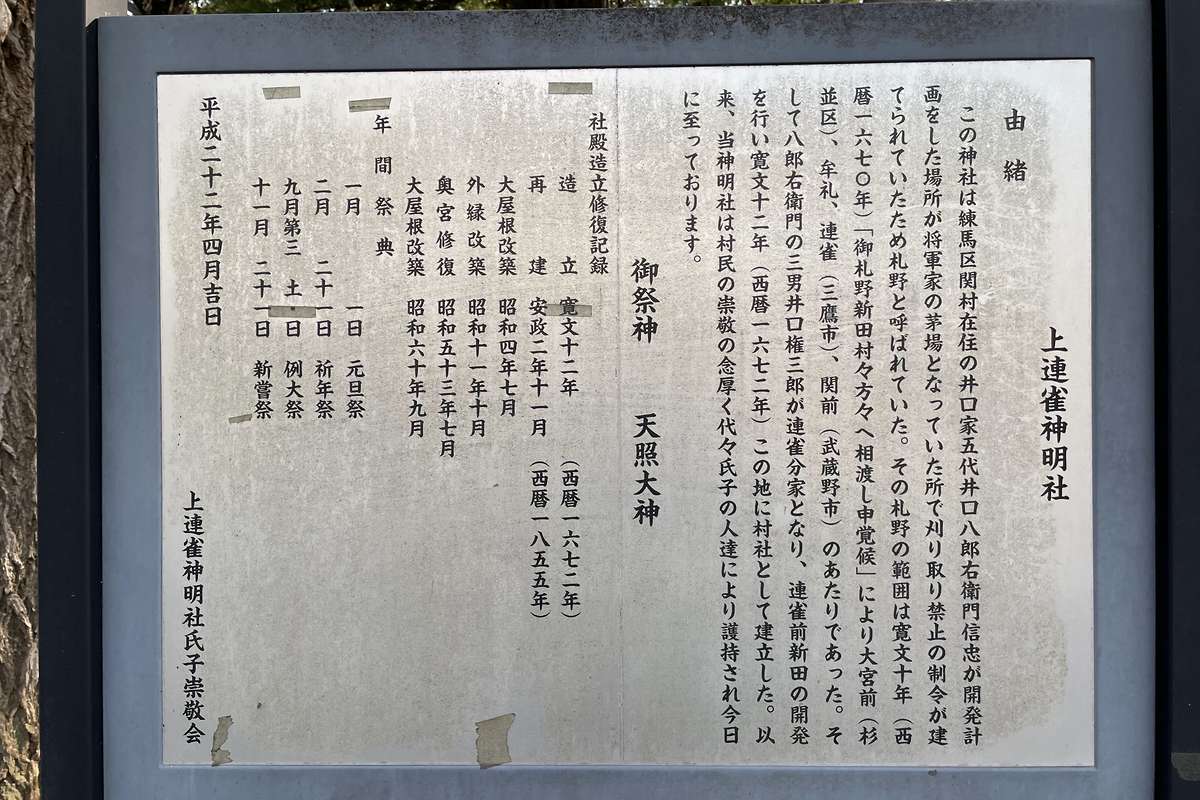 上連雀神明社
由緒
この神社は練馬区関村在住の井口家五代井口八郎右衛門信忠が開発計
画をした場所が将軍家の茅場となっていた所で刈り取り禁止の制令が建
てられていたため札野と呼ばれていた。その札野の範囲は寛文十年（西
暦一六七〇年）「御札野新田村々方々へ相渡し申覚候」により大宮前（杉
並区）、牟礼、連雀（三鷹市）、関前（武蔵野市）のあたりであった。そ
して八郎右衛門の三男井口権三郎が連雀分家となり、連雀前新田の開発
を行い寛文十二年（西暦一六七二年）この地に村社として建立した。以
来、当神明社は村民の崇敬の念厚く代々氏子の人達により護持され今日
に至っております。
御祭神 天照大神
社殿造立修復記録
造立 寛文十二年（西暦一六七二年）
再建 安政二年十一月（西暦一八五五年）
大屋根改築 昭和四年七月
外縁改築 昭和十一年十月
奥宮修復 昭和五十三年七月
大屋根改築 昭和六十年九月
年間祭典
一月 一日 元旦祭
二月 二十一日 祈年祭
九月第三 土 日 例大祭
十一月 二十一日 新嘗祭
平成二十二年四月吉日
上連雀神明社氏子崇敬会